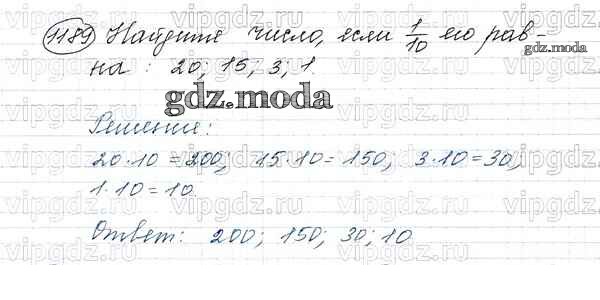 1189 Найдите число, если 1/10 его рав-
gdz.moda
на : 20; 15; 3; 1.
gdz.moda
Решение:
20·10 = 200; 15·10 = 150; 3·10 = 30;
1·10 = 10.
Ответ: 200; 150; 30; 10